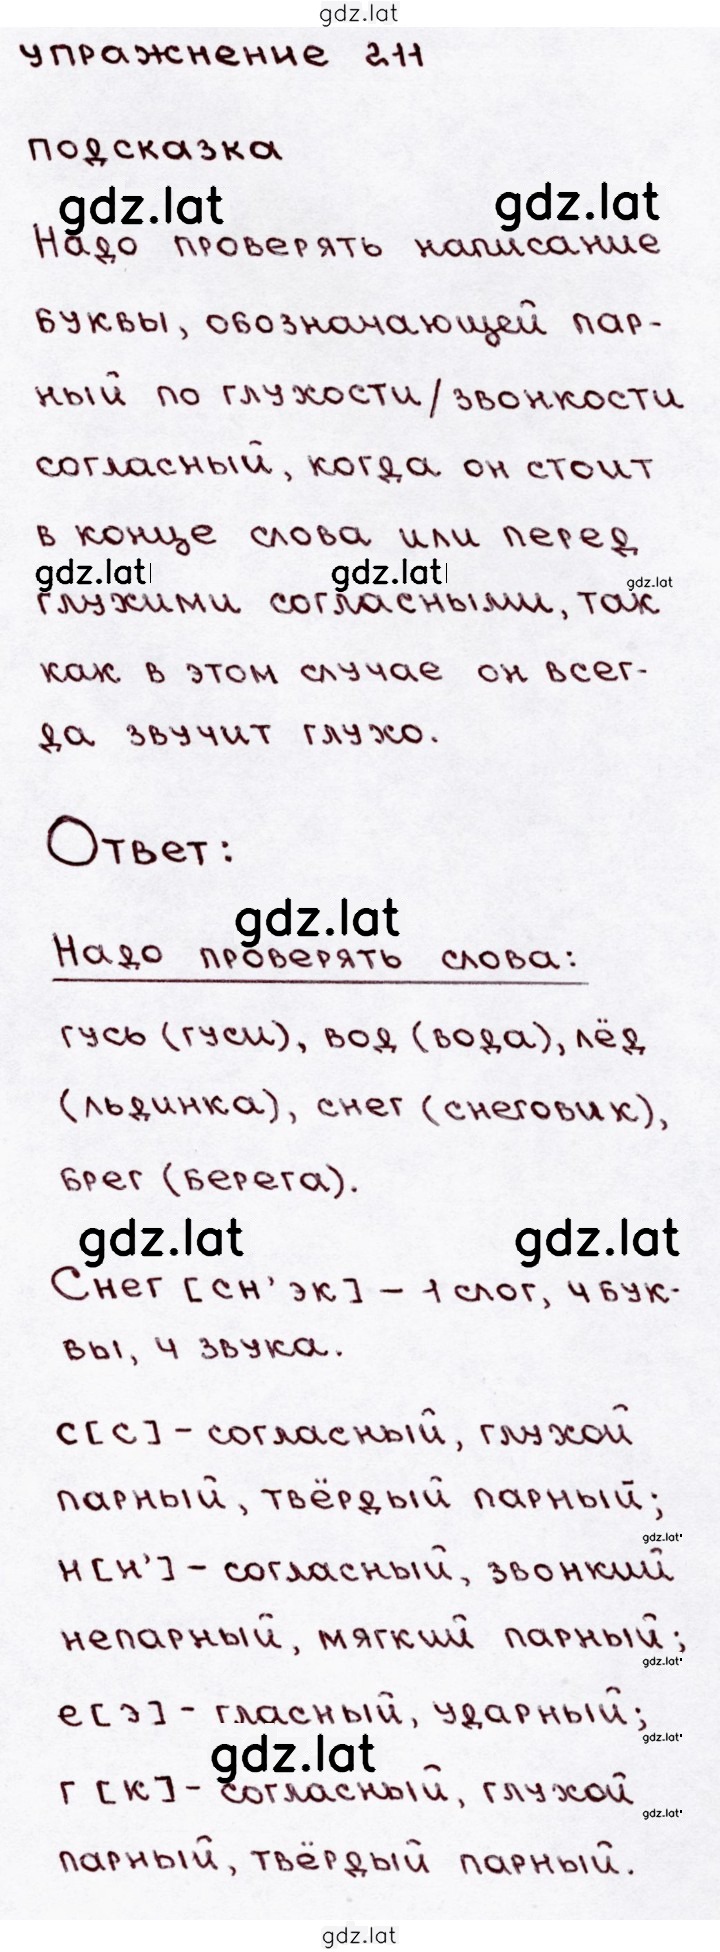 gdz.lat
упражнение 211
подсказка
gdz.lat gdz.lat
Надо проверять написание
буквы, обозначающей пар-
ный по глухости/звонкости
согласный, когда он стоит
в конце слова или перед
gdz.lat gdz.lat gdz.lat
глухими согласными, так
как в этом случае он всег-
да звучит глухо.
Ответ:
gdz.lat
Надо проверять слова:
гусь (гуси), вод (вода), лёд
(льдинка), снег (снеговик),
брег (берега).
gdz.lat gdz.lat
Снег [сн'эк] - 1 слог, 4 бук-
вы, 4 звука.
с[с] - согласный, глухой
парный, твёрдый парный;
gdz.lat
н[н'] - согласный, звонкий
непарный, мягкий парный;
gdz.lat
е[э] - гласный, ударный;
gdz.lat gdz.lat
г [к] - согласный, глухой
gdz.lat
парный, твёрдый парный.
gdz.lat